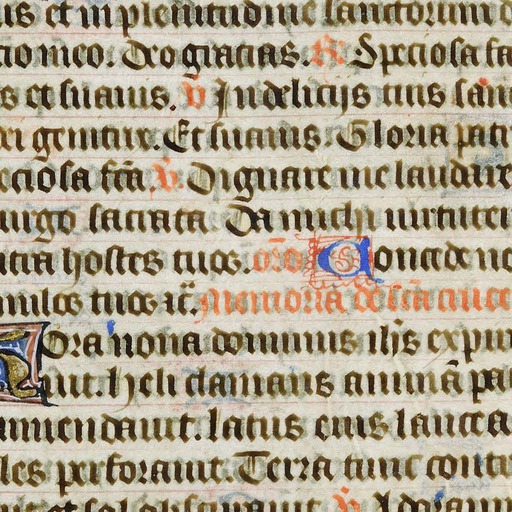 us et in plenitudine sanctorum d
cio meo. Deo gracias. R. Speciosa fa
s et suauis. V Jn delicijs tuis san
ei genitrix. Et suauis. Gloria patri
eciosa fca. V. Dignare me laudare
uirgo sacrata. Da michi uirtute
ntra hostes tuos. Oro. Concede no
mulos tuos ic. Memoria de sca cruce
Hora nona dominus ihs expira
uit. hely clamans animā pa
mendauit. latus eius lancea
les perforauit. Terra tunc contr
uit et sol obscurauit. V Adoramus